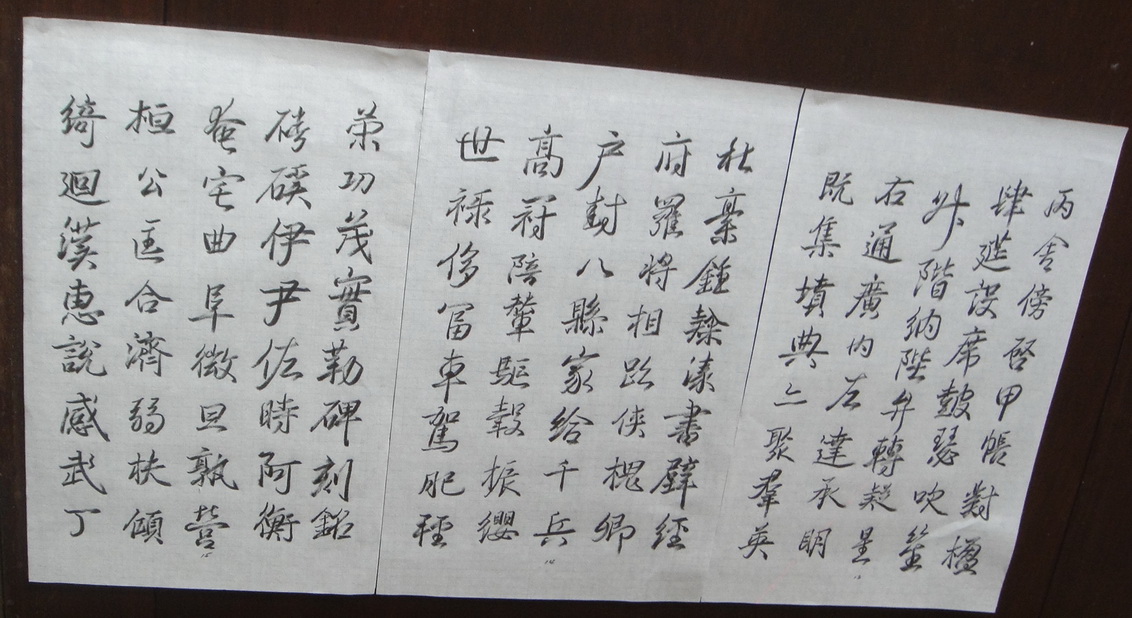 丙舍傍啓甲帳對楹
肆筵設席鼓瑟吹笙
升階納陛弁轉疑星
右通廣內左達承明
既集墳典亦聚羣英
杜稾鍾隸漆書壁經
府羅將相路俠槐卿
户封八縣家給千兵
髙冠陪輦驅轂振纓
世祿侈冨車駕肥輕
策功茂實勒碑刻銘
磻磎伊尹佐時阿衡
奄宅曲阜微旦孰營
桓公匡合濟弱扶傾
綺迴漢惠說感武丁